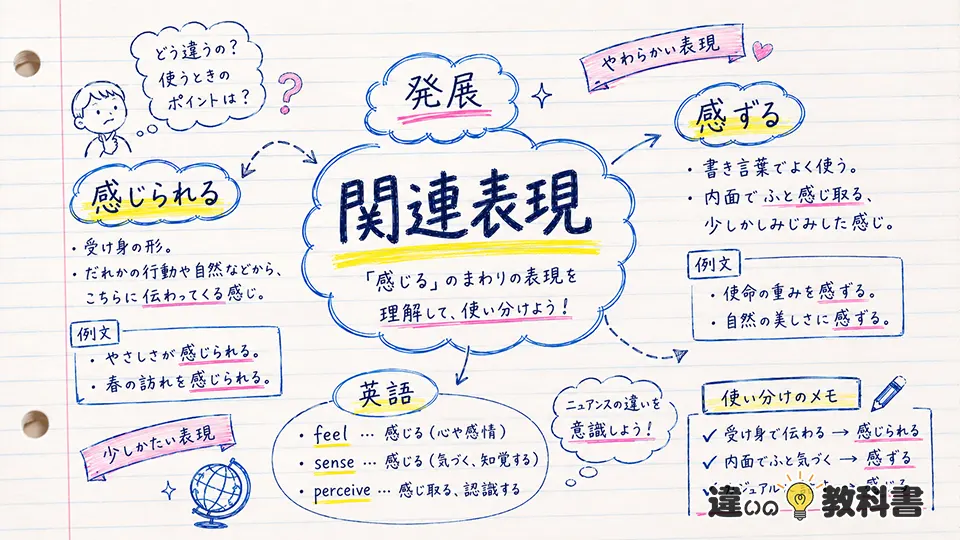 どう違うの？
使うときの
ポイントは？
?
発展
やわらかい表現
感じられる
・受け身の形。
・だれかの行動や自然などから、
こちらに伝わってくる感じ。
例文
・やさしさが感じられる。
・春の訪れを感じられる。
関連表現
「感じる」のまわりの表現を
理解して、使い分けよう！
感ずる
・書き言葉でよく使う。
・内面でふと感じ取る、
少しかしみじみした感じ。
例文
・使命の重みを感ずる。
・自然の美しさに感ずる。
少しかたい表現
英語
・feel … 感じる（心や感情）
・sense … 感じる（気づく、知覚する）
・perceive … 感じ取る、認識する
ニュアンスの違いを
意識しよう！
使い分けのメモ
✓ 受け身で伝わる → 感じられる
✓ 内面でふと気づく → 感ずる
違いの教科書